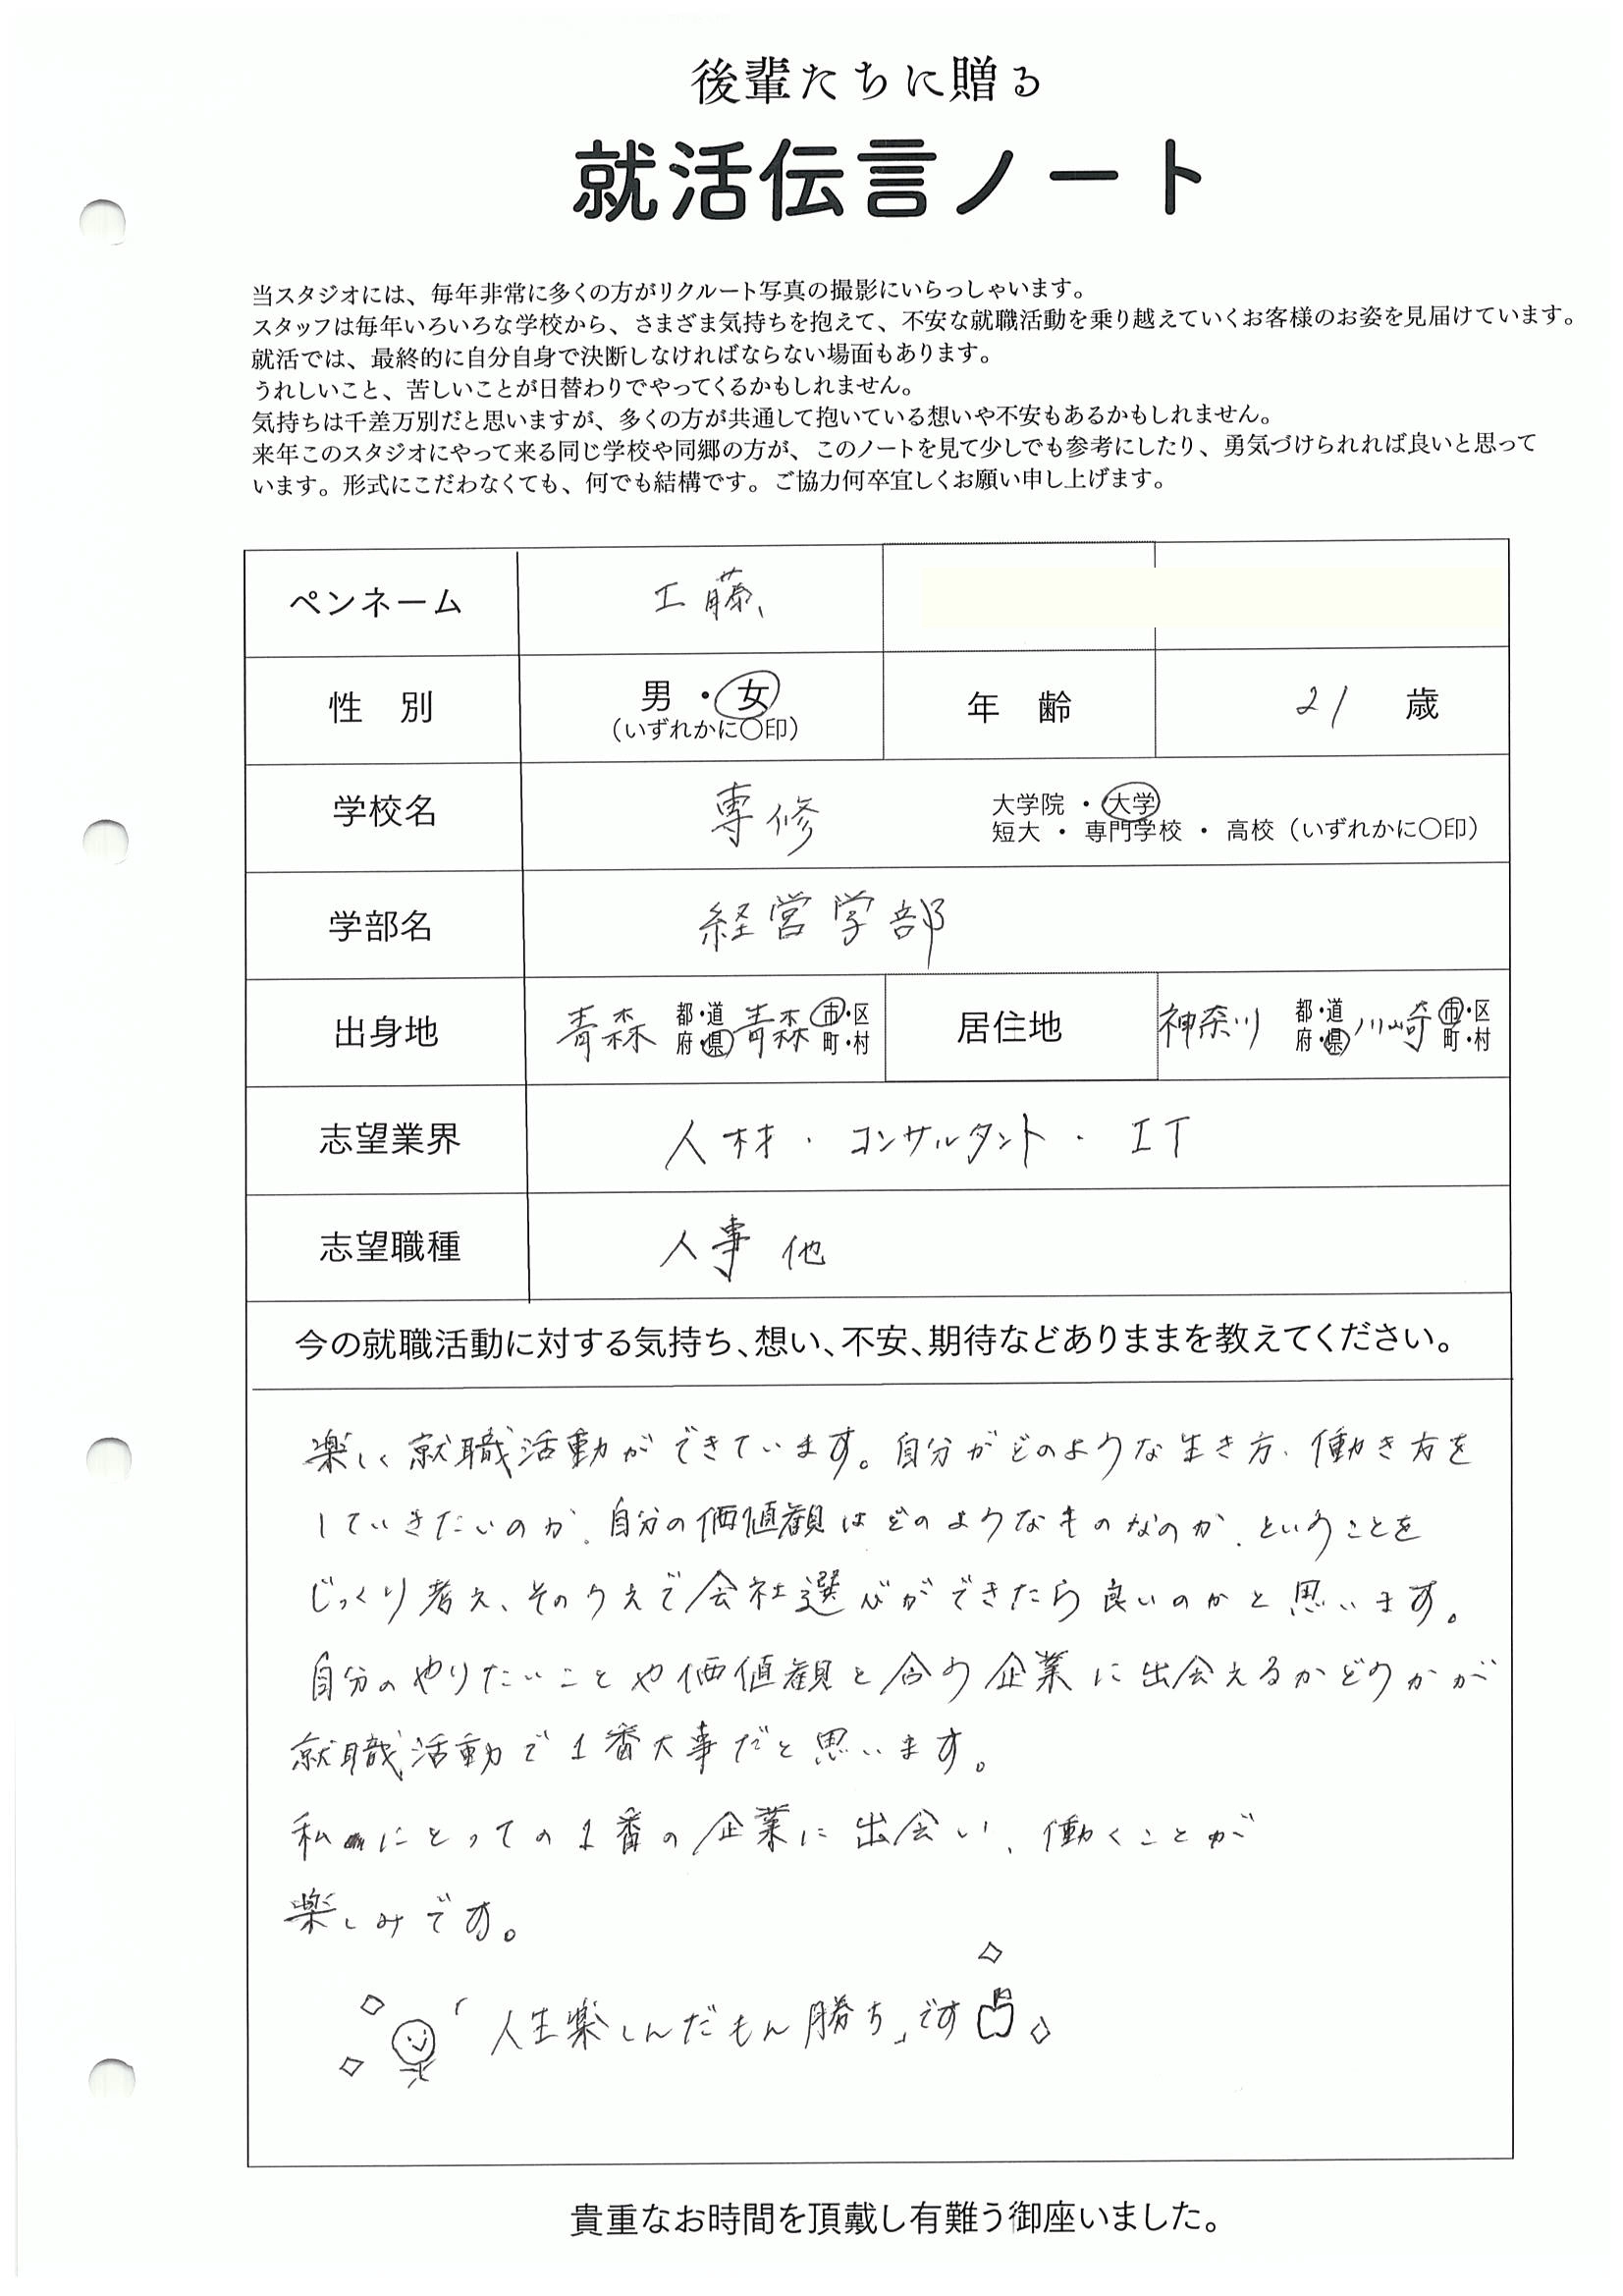 後輩たちに贈る
就活伝言ノート
当スタジオには、毎年非常に多くの方がリクルート写真の撮影にいらっしゃいます。
スタッフは毎年いろいろな学校から、さまざま気持ちを抱えて、不安な就職活動を乗り越えていくお客様のお姿を見届けています。
就活では、最終的に自分自身で決断しなければならない場面もあります。
うれしいこと、苦しいことが日替わりでやってくるかもしれません。
気持ちは千差万別だと思いますが、多くの方が共通して抱いている想いや不安もあるかもしれません。
来年このスタジオにやって来る同じ学校や同郷の方が、このノートを見て少しでも参考にしたり、勇気づけられれば良いと思って
います。形式にこだわなくても、何でも結構です。ご協力何卒宜しくお願い申し上げます。
ペンネーム 工藤
性 別 男・女 年 齢 21 歳
(いずれかに〇印)
学校名 専修 大学院・大学
短大・専門学校・高校(いずれかに〇印)
学部名 経営学部
出身地 青森 都・道 青森 市・区 居住地 神奈川 都・道 川崎 市・区
府・県 町・村 府・県 町・村
志望業界 人材・コンサルタント・IT
志望職種 人事 他
今の就職活動に対する気持ち、想い、不安、期待などありままを教えてください。
楽しく就職活動ができています。自分がどのような生き方、働き方を
していきたいのか、自分の価値観はどのようなものなのか、ということを
じっくり考え、そのうえで会社選びができたら良いのかと思います。
自分のやりたいことや価値観と合う企業に出会えるかどうかが
就職活動で1番大事だと思います。
私にとっての1番の企業に出会い、働くことが
楽しみです。
「人生楽しんだもん勝ち」です
貴重なお時間を頂戴し有難う御座いました。